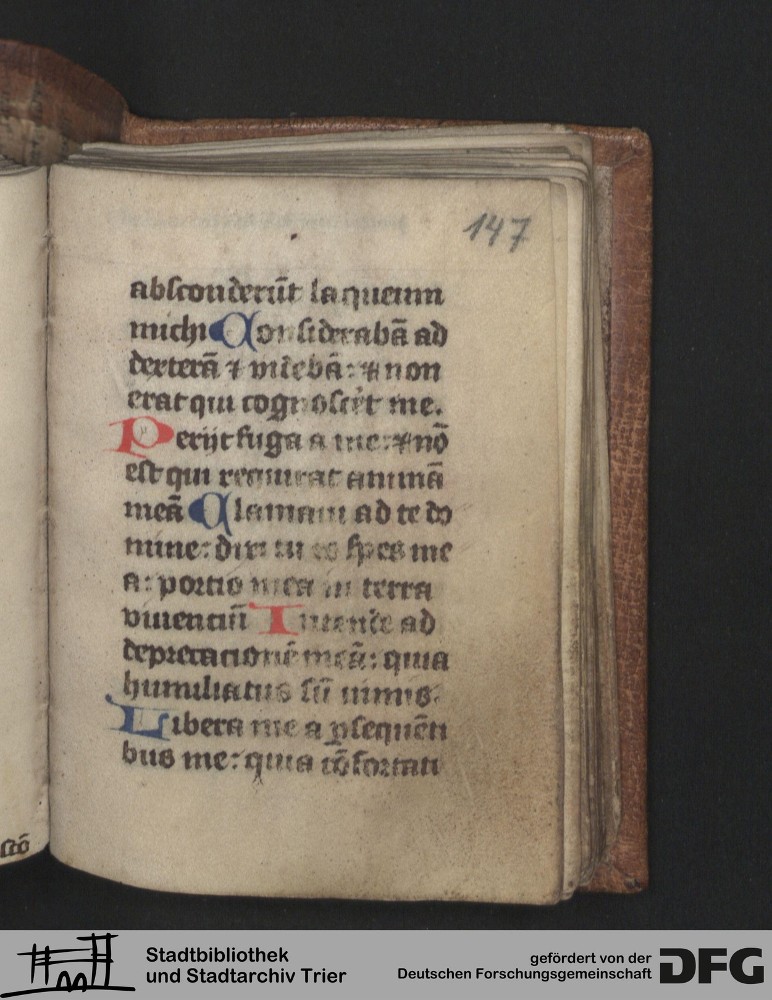 147
absconderūt laqueum
michi Considerabā ad
dexterā ⁊ videbā: ⁊ non
erat qui cognosceret me.
Perijt fuga a me: ⁊ nō
est qui requirat animā
meā Clamaui ad te do
mine: dixi tu es spes me
a: portio mea in terra
viuentiū Intende ad
deprecationē meā: quia
humiliatus sū nimis.
Libera me a ꝑsequēti
bus me: quia cōfortati
Stadtbibliothek
und Stadtarchiv Trier
gefördert von der
Deutschen Forschungsgemeinschaft
DFG